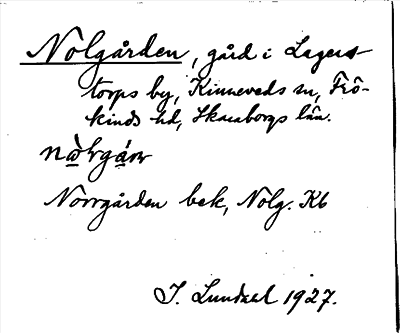 Nolgården, gård i Lagers-
torps by, Kinneveds sn, Frö-
kinds hd, Skaraborgs län.
Norrgården bek, Nolg. Kb
I. Lundahl 1927.